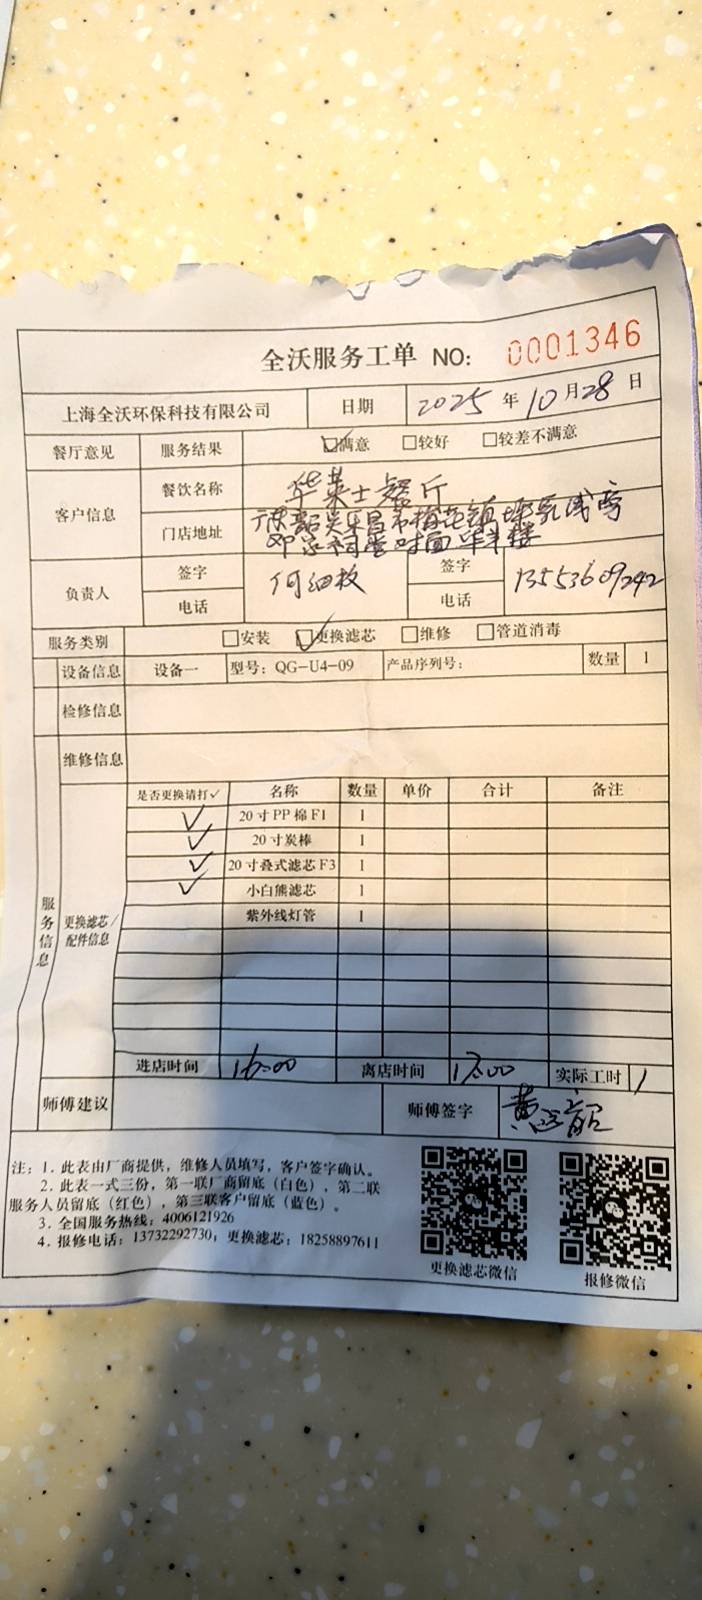 全沃服务工单 NO: 0001346
上海全沃环保科技有限公司 日期 2025 年 10 月 28 日
餐厅意见 服务结果 满意 较好 较差不满意
客户信息 餐饮名称 华莱士餐厅
门店地址 韶关乐昌市梅花镇
祠堂对面华莱
负责人 签字 何细枚 签字 13553609242
电话 电话
服务类别 安装 更换滤芯 维修 管道消毒
设备信息 设备一 型号: QG-U4-09 产品序列号: 数量 1
检修信息
维修信息
服务信息 更换滤芯/配件信息
是否更换请打✓ 名称 数量 单价 合计 备注
✓ 20寸PP棉F1 1
✓ 20寸炭棒 1
✓ 20寸叠式滤芯F3 1
✓ 小白熊滤芯 1
紫外线灯管 1
进店时间 16:00 离店时间 17:00 实际工时 1
师傅建议 师傅签字 黄
注: 1. 此表由厂商提供，维修人员填写，客户签字确认。
2. 此表一式三份，第一联厂商留底（白色），第二联
服务人员留底（红色），第三联客户留底（蓝色）。
3. 全国服务热线: 4006121926
4. 报修电话: 13732292730; 更换滤芯: 18258897611
更换滤芯微信 报修微信